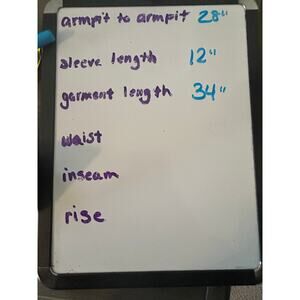 armpit to armpit 28"
sleeve length 12"
garment length 34"
waist
inseam
rise